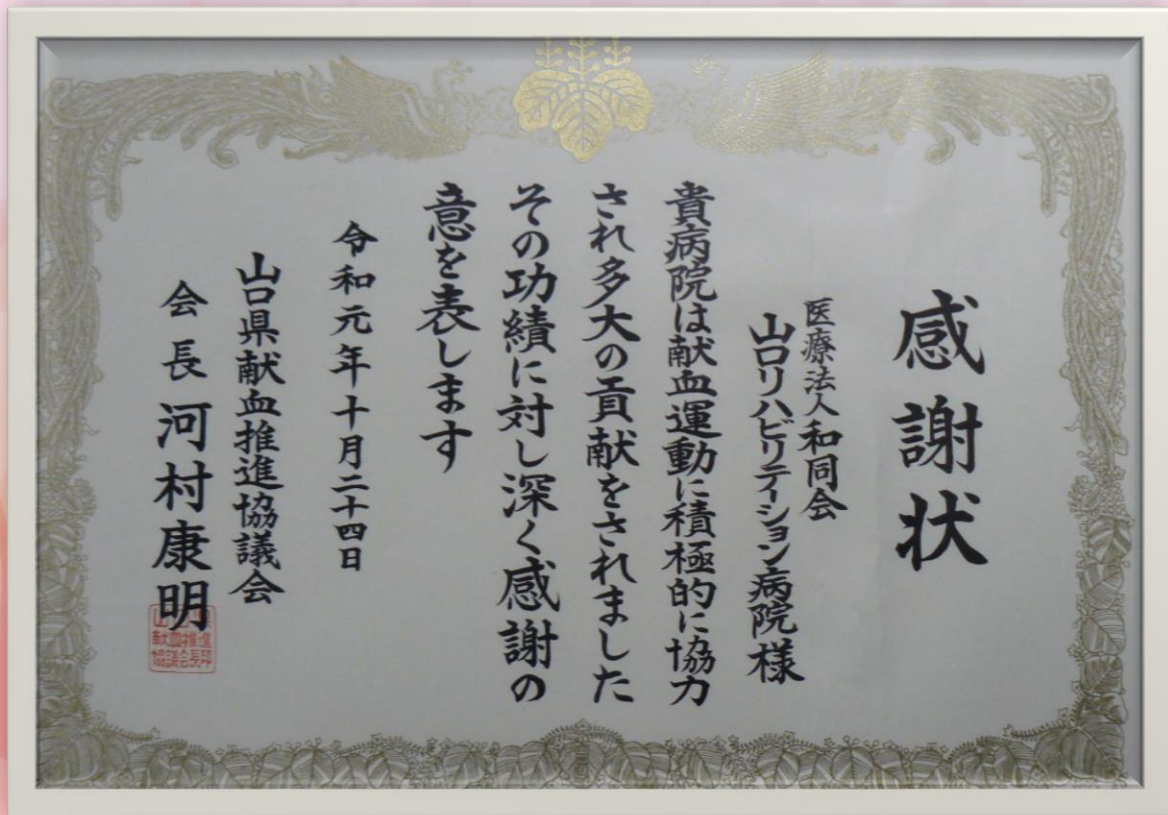 感謝状
医療法人和同会
山口リハビリテーション病院様
貴病院は献血運動に積極的に協力
され多大の貢献をされました
その功績に対し深く感謝の
意を表します
令和元年十月二十四日
山口県献血推進協議会
会長河村康明
献血推進
協議会長印